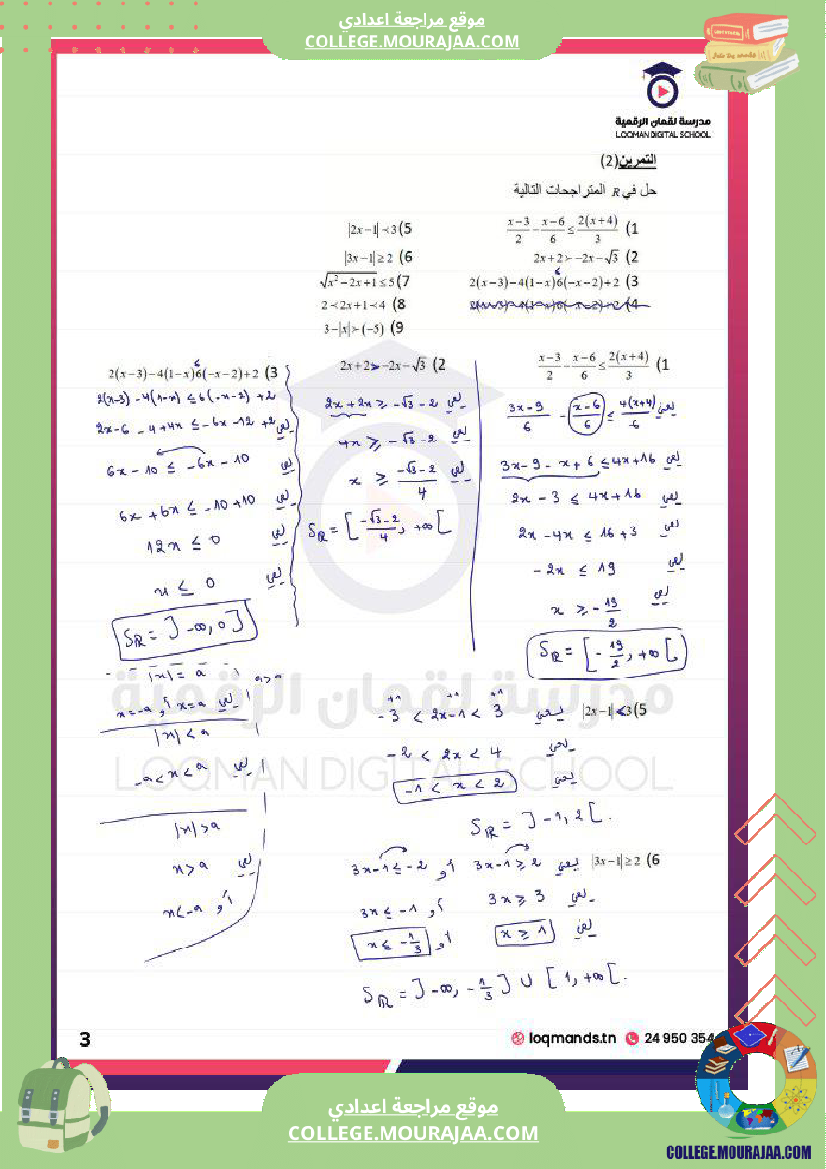 موقع مراجعة اعدادي
COLLEGE.MOURAJAA.COM
مدرسة لقمان الرقمية
LOQMAN DIGITAL SCHOOL
التمرين(2)
حل في R المتراجحات التالية
1) (x-3)/2 - (x-6)/6 ≤ 2(x+4)/3
2) 2x+2 ≻ -2x-√3
3) 2(x-3)-4(1-x)6(-x-2)+2
≤
5) |2x-1| ≺ 3
6) |3x-1| ≥ 2
7) √(x²-2x+1) ≤ 5
8) 2 ≺ 2x+1 ≺ 4
9) 3-|x| ≻ (-5)
1) (x-3)/2 - (x-6)/6 ≤ 2(x+4)/3
يعني (3x-9)/6 - (x-6)/6 ≤ 4(x+4)/6
يعني 3x-9-x+6 ≤ 4x+16
يعني 2x-3 ≤ 4x+16
يعني 2x-4x ≤ 16+3
يعني -2x ≤ 19
يعني x ≥ -19/2
Sℝ = [-19/2, +∞[
2) 2x+2 ≥ -2x-√3
يعني 2x+2x ≥ -√3-2
يعني 4x ≥ -√3-2
يعني x ≥ (-√3-2)/4
Sℝ = [(-√3-2)/4, +∞[
3) 2(x-3)-4(1-x)6(-x-2)+2
≤
2(x-3)-4(1-x) ≤ 6(-x-2)+2
يعني 2x-6-4+4x ≤ -6x-12+2
يعني 6x-10 ≤ -6x-10
يعني 6x+6x ≤ -10+10
يعني 12x ≤ 0
يعني x ≤ 0
Sℝ = ]-∞, 0]
|x| = a a>0
يعني x=a أو x=-a
|x| < a
يعني -a<x<a
|x| > a
يعني x>a
أو x<-a
5) |2x-1| < 3 يعني -3 < 2x-1 < 3
+1 +1 +1
يعني -2 < 2x < 4
يعني -1 < x < 2
Sℝ = ]-1, 2[.
6) |3x-1| ≥ 2 يعني 3x-1 ≥ 2 أو 3x-1 ≤ -2
يعني 3x ≥ 3 أو 3x ≤ -1
يعني x ≥ 1 أو x ≤ -1/3
Sℝ = ]-∞, -1/3] ∪ [1, +∞[.
مدرسة لقمان الرقمية
LOQMAN DIGITAL SCHOOL
3
loqmands.tn 24 950 354
موقع مراجعة اعدادي
COLLEGE.MOURAJAA.COM
COLLEGE.MOURAJAA.COM